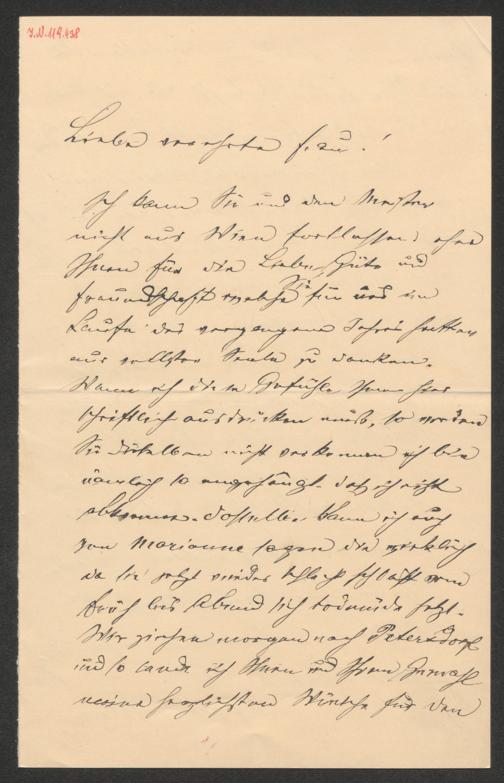 I.N. 119.438
Liebe verehrte Frau!
Ich kann Sie und den Meister
nicht aus Wien fortlassen, ohne
Ihnen für die Liebe, Güte und
Freundschaft welche Sie für uns im
Laufe des vergangenen Jahres hatten
aus vollster Seele zu danken.
Wenn ich diese Gefühle Ihnen hier
schriftlich ausdrücken muß, so werden
Sie dieselben nicht verkennen ich bin
nämlich so angehängt, daß ich nicht
abkomme. Dasselbe kann ich auch
von Marianne sagen die wirklich
da sie jetzt wieder schlecht schläft von
früh bis Abend sich todmüde
Wir ziehen morgen nach Petersdorf
und so sende ich Ihnen und Ihrem Gemahl
meine herzlichsten Wünsche für den